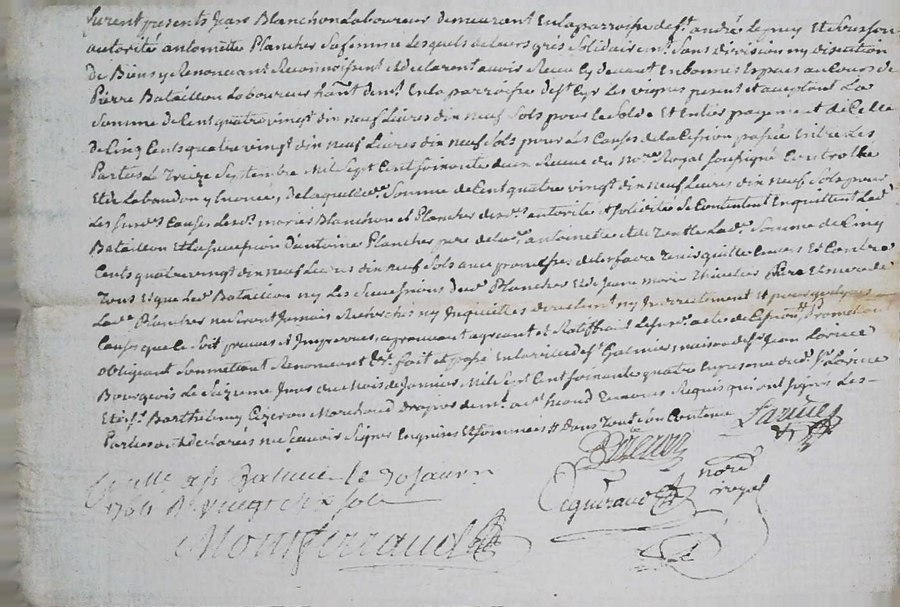 furent presents Jean Blanchon Laboureur demeurant En la parroisse de st. andré Lepuy Et de son
autorité antoinette Plancher Sa femme Lesquels de leurs grés Solidairemt. Sans division ny discution
de Biens y Renoncant Reconnoissent et declarent avoir Receu Cy devant En bonnes Espeses au Cours de
Pierre Bataillon Laboureur hânt demt. En la parroisse de st Cyr Les vignes present et acceptant La
Somme de Cent quatre vingt dix neuf Livres dix neuf Sols pour le Solde Et Entier payement de Celle
de Cinq Cents quatre vingt dix neuf Livres dix neuf Sols pour Les Causes de la Cession passée Entre Les
Parties Le Treize Septembre Mil Sept Cent soixante deux Receue du Nore. Royal soussigné Controllée
Et de Labaudon y Enoncé, de laquelle de. Somme de Cent quatre vingt dix neuf Livres dix neuf Sols pour
Les susd. Causes Lesd. mariés Blanchon et Plancher desd. autorité et solidité Se Contentent En quittent Led.
Bataillon Et La succession d'antoine Plancher pere de lad. antoinette et de Toutte Lade. Somme de Cinq
Cents quatre vingt dix neuf Livres dix neuf Sols avec promesses de les faire Tenir quitte Envers Et Contre
Tous Et que Led. Bataillon ny Les Successions dud. Plancher Et de Jeanne marie Thivelier Pere Et mere de
Lade. Plancher ne seront Jamais Recherchés ny Inquiettés directement ny Indirectement Et pour quelques
Causes que Ce Soit preveues et Impreveues, aprouvant agreant et Ratiffiant Lesusd. acte de Cession Promettant
obligeant Soumettant Renonceant &ct. fait et passé En la ville de st Galmier maison de sr Jean Lavince
Bourgeois Le Seizieme Jour du Mois de Janvier Mil Sept Cent soixante quatre En presence dud. sr. Lavince
Et de sr. Barthelemy Cizeron Marchand drapier demt. aud. st heand Temoins Requis qui ont signés Les
Parties ont declarés ne Scavoir Signer Enquises Et sommées dans Tout Son Contenu
Cizeron Lavince
Peigneraud nore royal
a st Galmié le 30 janv
1764 Rt vingt six sols
Montferraud